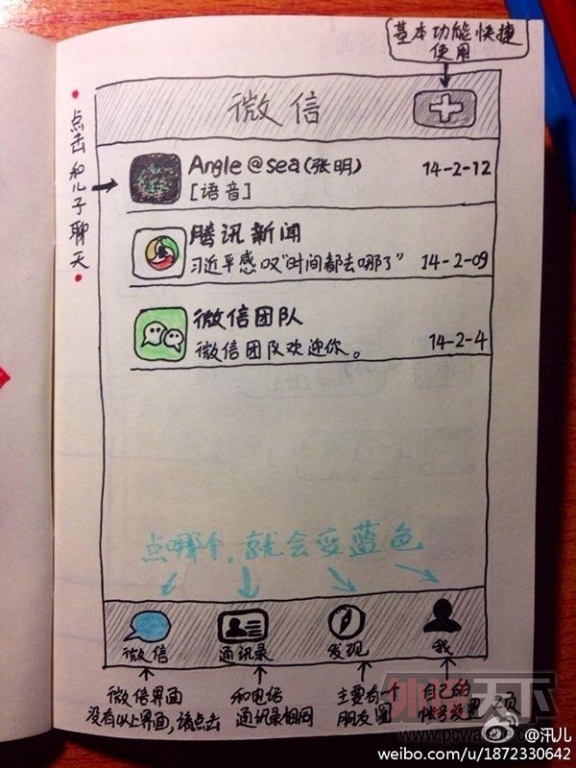 基本功能快捷
使用
微信
•点击和儿子聊天•
Angle@sea(张明)
14-2-12
[语音]
腾讯新闻
习近平感叹"时间都去哪了"
14-2-09
微信团队
微信团队欢迎你。
14-2-4
点哪个,就会变蓝色
微信
通讯录
发现
我
微信界面
没有以上界面,请点击
和电话
通讯录相同
主要有一个
朋友圈
自己的
帐号设置
@汛儿
weibo.com/u/1872330642